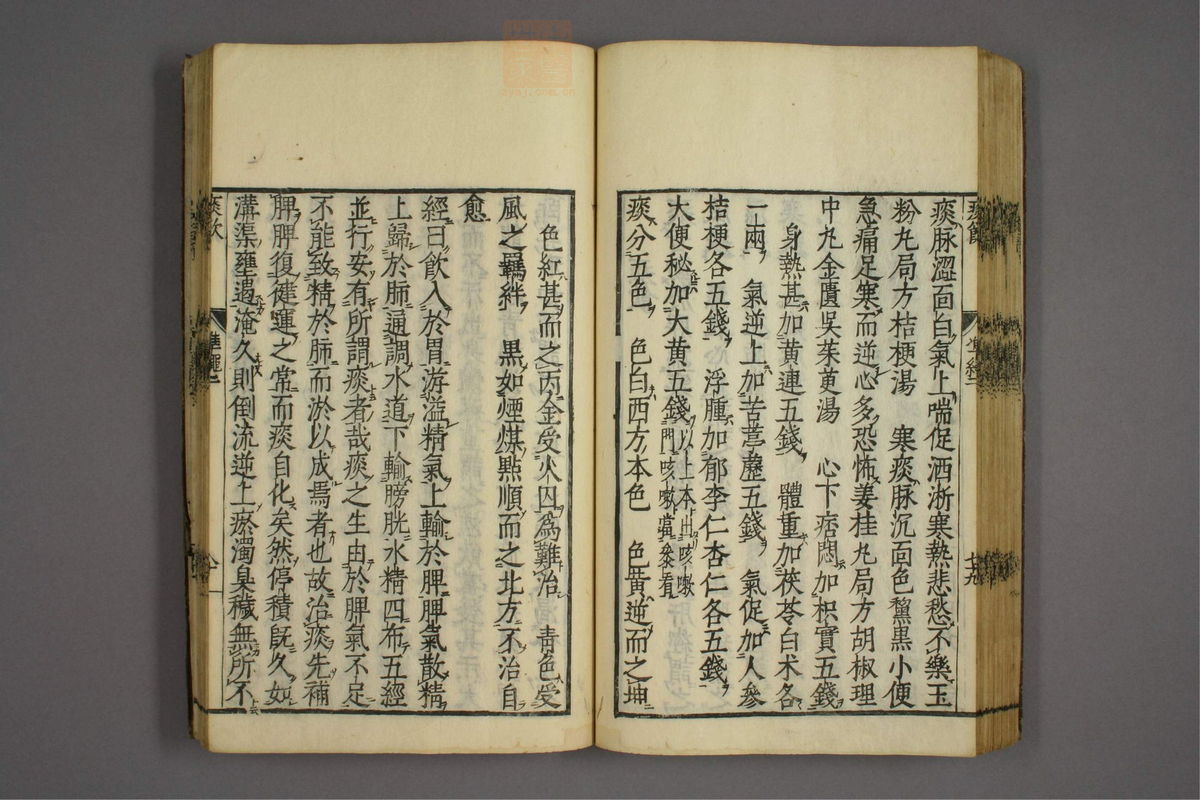 痰飲
準繩二
七九
痰脉澀面白氣上喘促洒淅寒熱悲愁不樂玉
粉丸局方桔梗湯　寒痰脉沉面色黧黑小便
急痛足寒而逆心多恐怖姜桂丸局方胡椒理
中丸金匱吳茱萸湯　心下痞悶加枳實五錢
身熱甚加黃連五錢　體重加茯苓白术各
一兩　氣逆上加苦葶藶五錢　氣促加人參
桔梗各五錢　浮腫加郁李仁杏仁各五錢
大便秘加大黃五錢以上本出咳嗽門咳嗽當參看
痰分五色　色白西方本色　色黃逆而之坤
色紅甚而之丙金受火囚爲難治　青色受
風之羈絆　黒如煙煤㸃順而之北方不治自
愈
經曰飲入於胃游溢精氣上輸於脾脾氣散精
上歸於肺通調水道下輸膀胱水精四布五經
並行安有所謂痰者哉痰之生由於脾氣不足
不能致精於肺而淤以成焉者也故治痰先補
脾脾復健運之常而痰自化矣然停積旣久如
溝渠壅遏淹久則倒流逆上瘀濁臭穢無所不
痰飲
準繩二